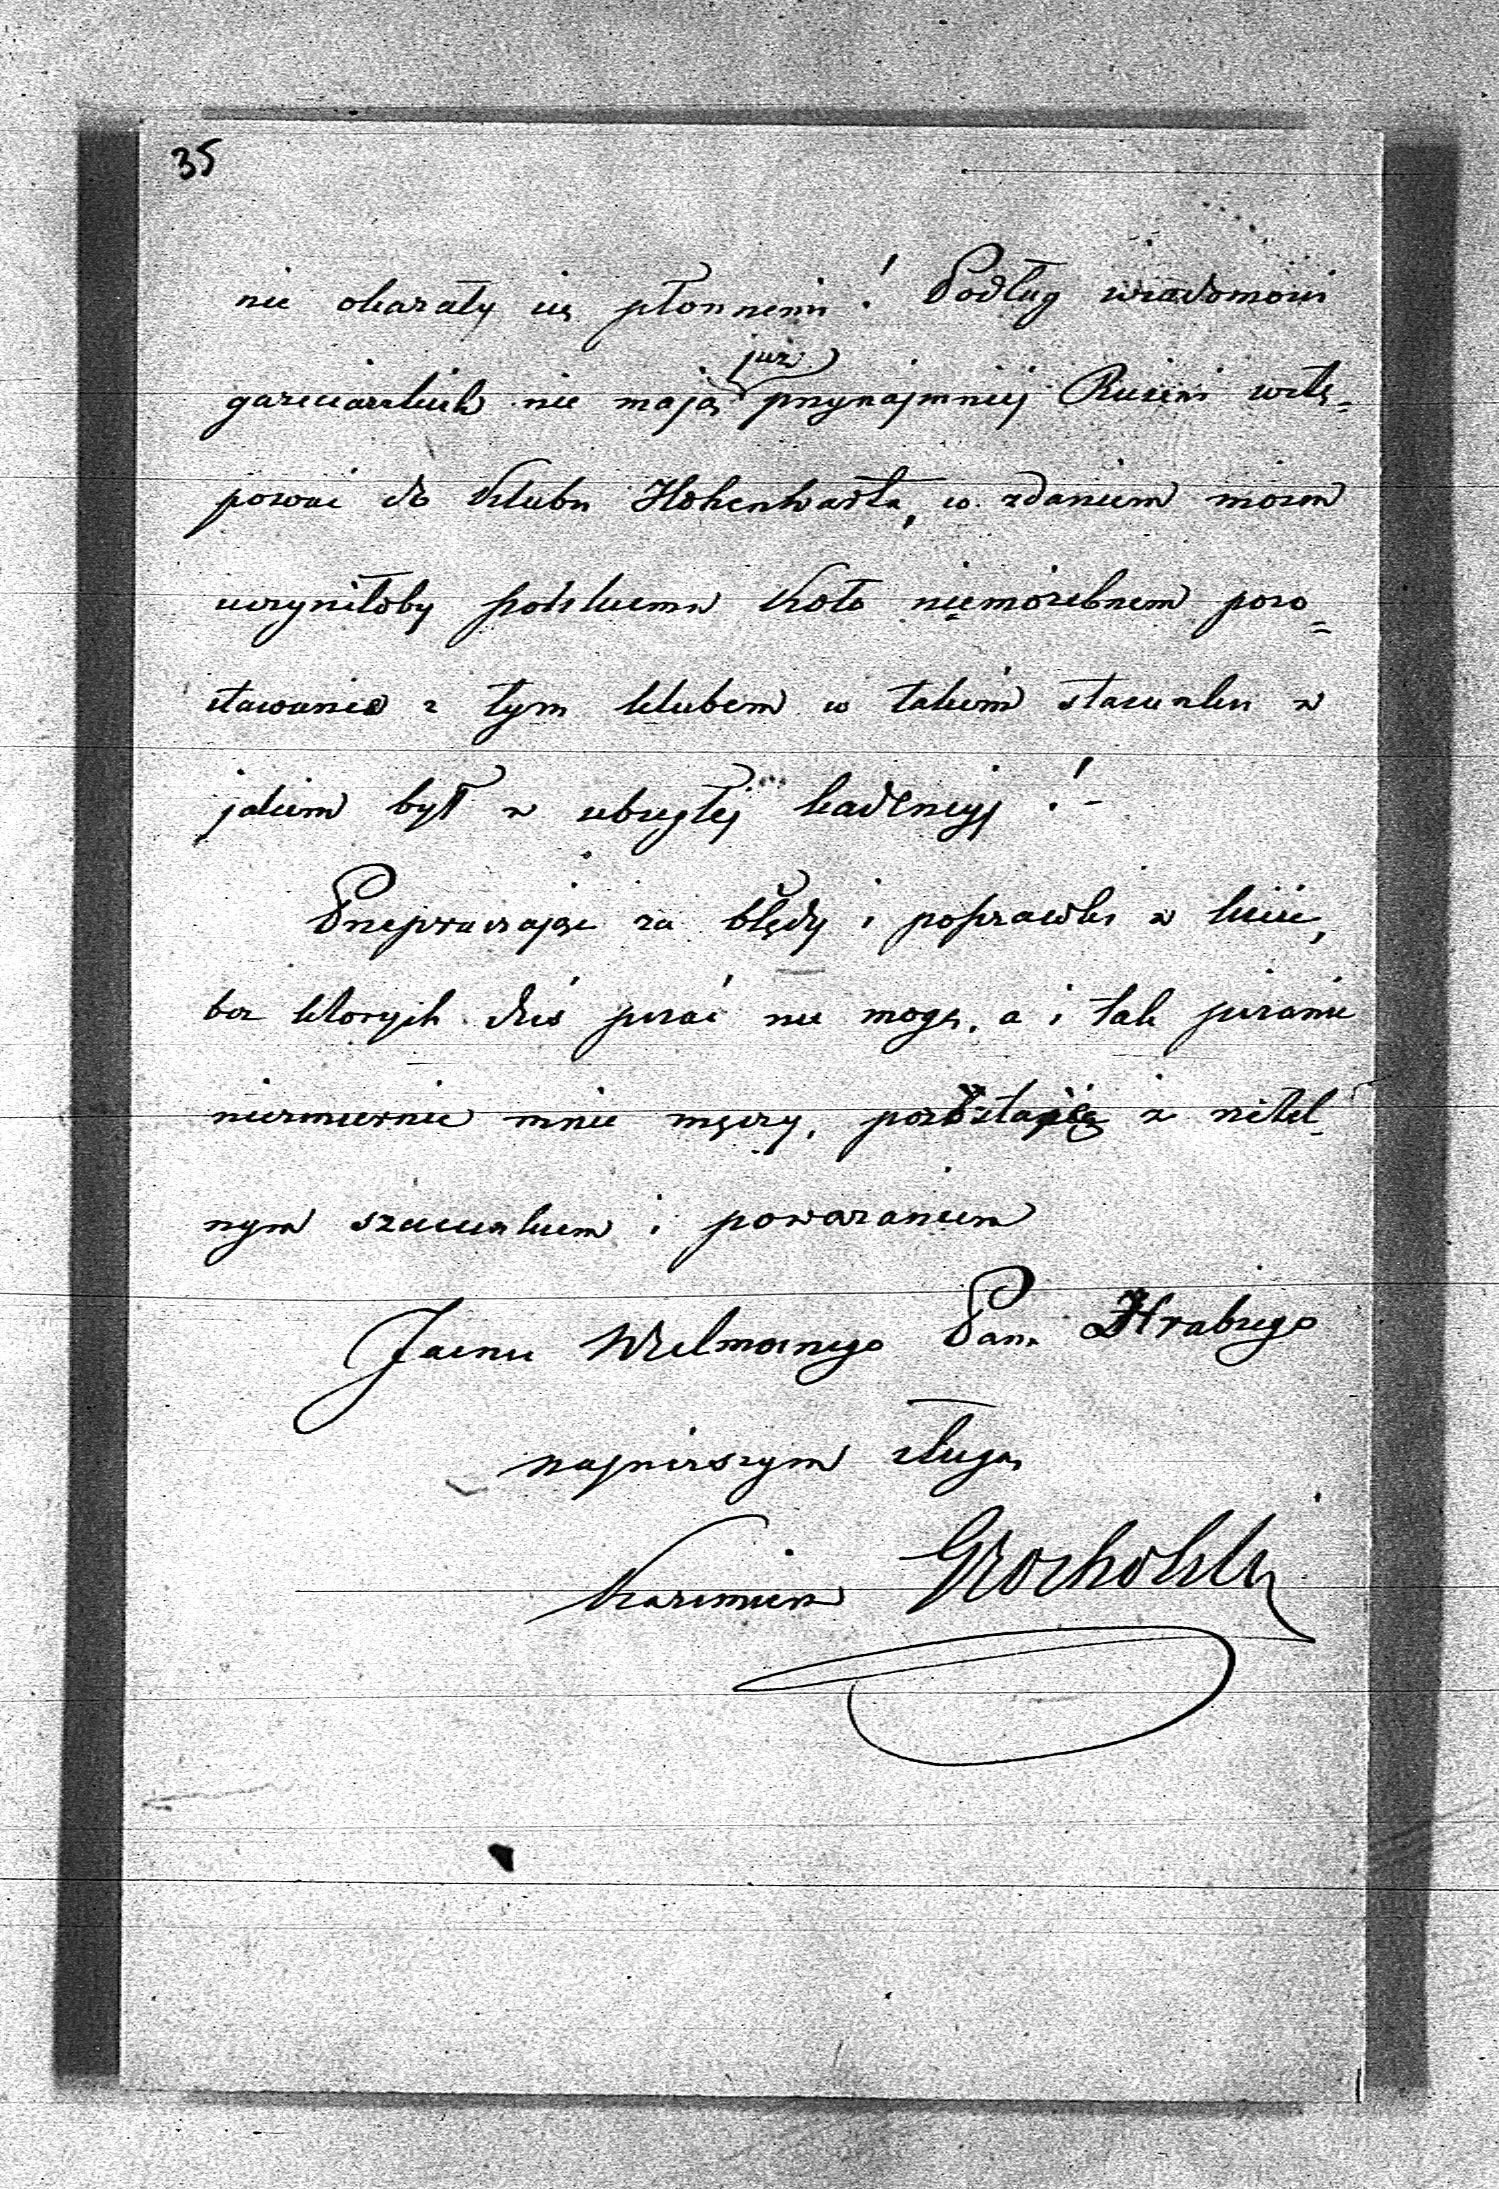 35
nie okazały się płonnemi! Podług wiadomości
gazeciarskich nie mają już przynajmniej Rusini wstę=
pować do Klubu Hohenwarta, co zdaniem mojem
uczyniłoby polskiemu Kołu niemożebnem pozo=
stawanie z tym klubem w takim stosunku w
jakim był w ubiegłej kadencyj!-
Przepraszając za błędy i poprawki w liście,
bez ktorych dziś pisać nie mogę, a i tak pisanie
niezmiernie mnie męczy, pozostaję z rzetel-
nym szacunkiem i poważaniem
Jaśnie Wielmożnego Pana Hrabiego
najniższym sługą
Kazimierz Grocholski